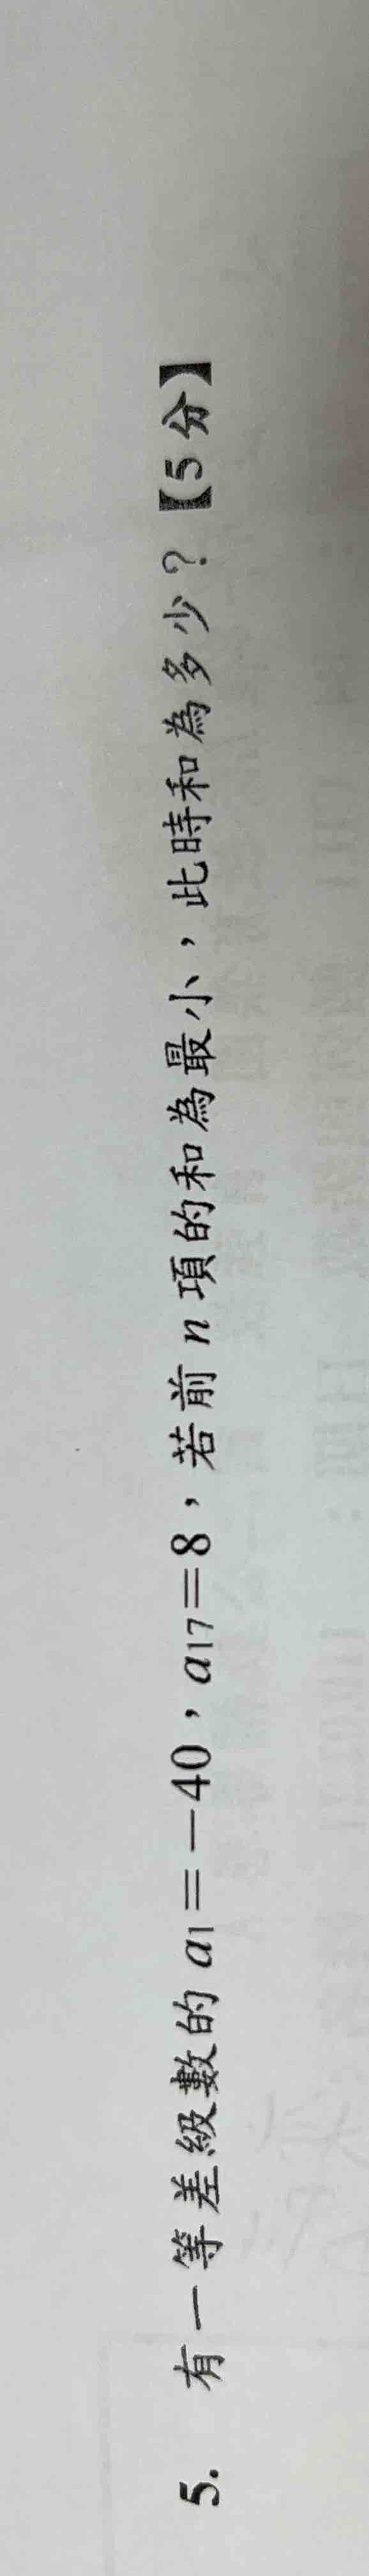 5. 有一等差級數的 a₁＝－40，a₁₇＝8，若前 n 項的和為最小，此時和為多少？【5 分】